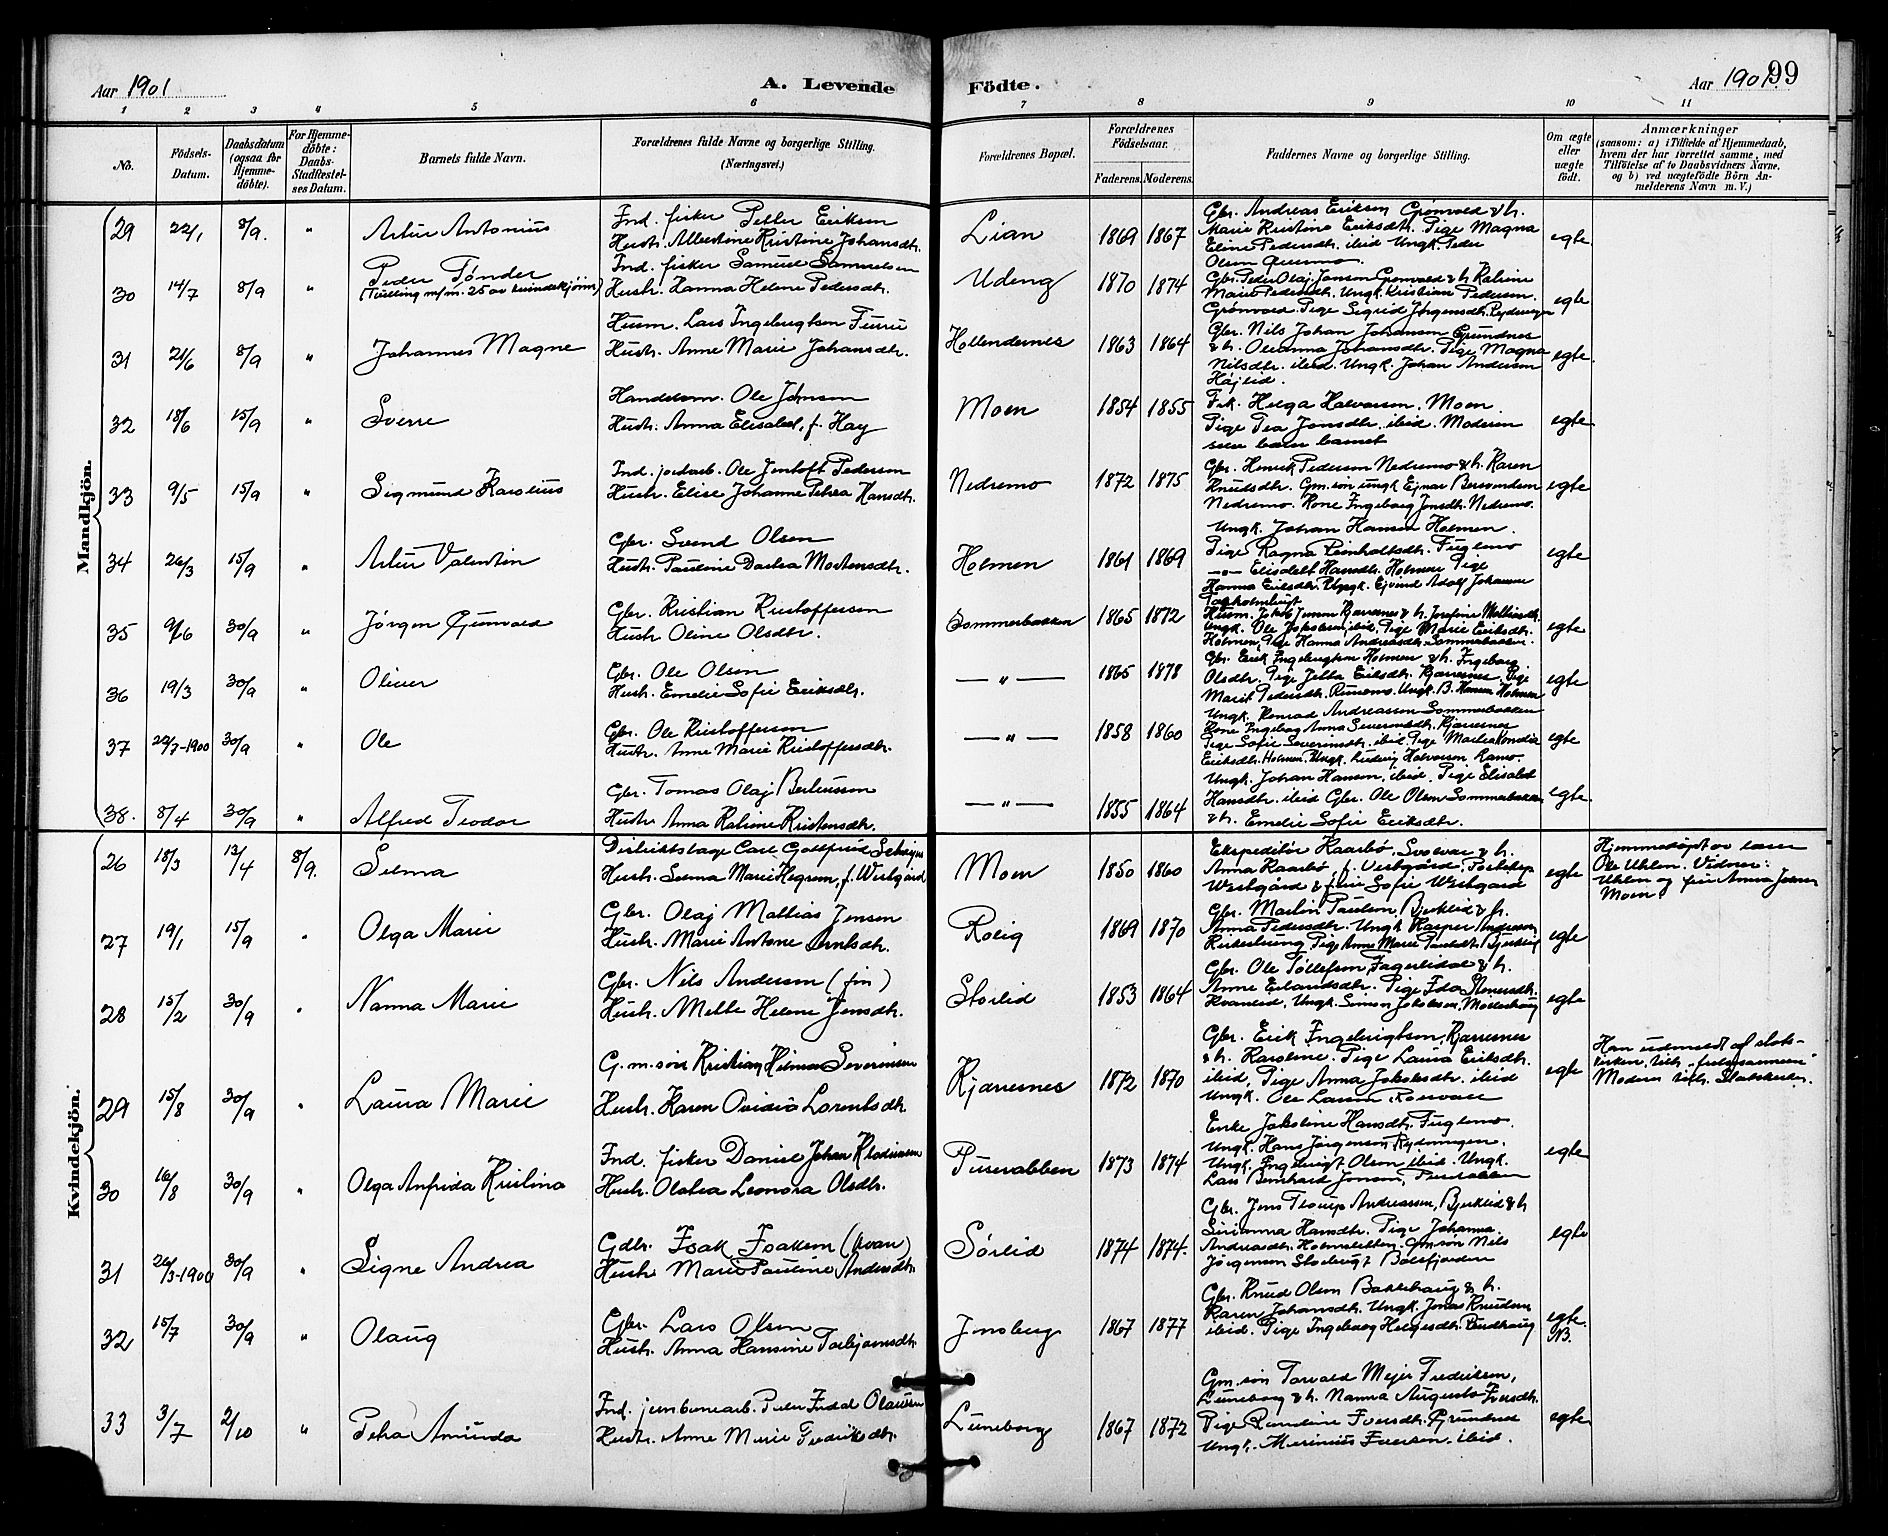 Aar 1901
A. Levende
Födte.
Aar 1901.
99
1 2 3 4 5 6 7 8 9 10 11
No.
Födsels-
Datum.
Daabsdatum
(ogsaa for
Hjemme-
döbte).
For Hjemme-
döbte:
Daabs-
Stadfestel-
ses Datum.
Barnets fulde Navn.
Forældrenes fulde Navne og borgerlige Stilling.
(Næringsvei.)
Forældrenes Bopæl.
Forældrenes
Födselsaar.
Faderens. Moderens.
Faddernes Navne og borgerlige Stilling.
Om ægte
eller
uægte
födt.
Anmærkninger
(saasom: a) i Tilfælde af Hjemmedaab,
hvem der har forrettet samme, med
Tilföielse af to Daabsvidners Navne,
og b) ved uægtefödte Börn An-
melderens Navn m. V.)
Mandkjön.
29 22/1 8/9. " Artur Antonius
Ind. fisker Petter Eriksen
Hustr. Albertine Kristine Johansdtr.
Lian 1869 1867
Gbr. Andreas Eriksen Grönvold & h.
Marie Kristine Eriksdtr. Pige Magna
Eline Pedersdtr. ibid Ungk. Peder
Olsen
egte
30 14/7 8/9 " Peder Tönder
(Tvilling m/m. 25 av kvindekjönn)
Ind. fisker Samuel Samuelsen
Hustr. Hanna Helene Pedersdtr.
Udeng 1870 1874
Gbr. Peder Olaj Jenson Grönvold & h. Katrine
Marie Pedersdtr. Ungk. Kristian Pedersen
Grönvold. Pige Sigrid Jörgensdtr. Rydningen
egte
31 21/6 8/9 " Johannes Magne
Husm. Lars Ingebrigtsen Furru
Hustr. Anne Marie Johansdtr.
Hollendernes 1863 1864
Gbr. Nils Johan Johansen Grundnes
& h. Oleanna Johansdtr. Pige Magna
Nilsdtr. ibid. Ungk. Johan Andersen
Højlid.
egte.
32 18/6 15/9 " Sverre
Handelsm. Ole Jönsson
Hustr. Anna Elisabet, f. Hay
Moen 1854 1855
Frk. Helga Halvorsen, Moen.
Pige Pea Jonsdtr. ibid. Moderen
selv bar barnet
egte
33 9/5 15/9 " Sigmund Karolius
Ind. jordarb. Ole Jentoft Pederson
Hustr. Elise Johanne Petra Hansdtr.
Nedremo 1872 1875
Gbr. Henrik Pederson Nedremo & h. Karen
Knudsdtr. Gm.sön ungk Ejnar Berssvendsen
Nedremo. Kone Ingeborg Jonsdtr. Nedremo.
egte
34 26/3 15/9 " Artur Valentin
Gbr. Svend Olsen
Hustr. Pauline Dorkea Mortensdtr.
Holmen 1861 1869
Ungk. Johan Hansen Holmen.
Pige Ragna Reinholtsdtr. Fuglemo
—"— Elisabet Hansdtr. Holmen Pige
Hanna Eriksdtr. Ungk. Ejvind Adolf Johansen
egte
35 9/6 30/9 " Jörgen Gunvald
Gbr. Kristian Kristofferson
Hustr Oline Olsdtr.
Sommerbakken 1865 1872
Husm. Jakob Jenson Kjærresnes & h. Josefine Mathiasdtr.
Ungk. Ole Jakobsen ibid, Pige Marie Eriksdtr.
Holmen, Pige Hanna Andreasdtr. Sommerbakken
egte
36 19/3 30/9 " Oliver
Gbr. Ole Olsen
Hustr. Emelie Sofie Eriksdtr.
— " — 1865 1878
Gbr. Erik Ingebrigtson Holmen & h. Ingeborg
Olsdtr. Pige Jetta Eriksdtr. Kjærresnes, Pige
Marit Pedersdtr. Ungk. B. Hansen Holmen
Ungk. Konrad Andreassen Sommerbakken
egte
37 22/7-1900 30/9 " Ole
Gbr. Ole Kristofferson
Hustr. Anne Marie Kristoffersdtr.
— " — 1858 1860
Kone Ingeborg Anna Severinsdtr. Kjærresnes
Pige Sofie Severinsdtr. ibid. Pige
Eriksdtr. Holmen. Ungk. Ludvig Halvorsen Ramo.
egte
38. 8/4 30/9 " Alfred Teodor
Gbr. Tomas Olaj Berteusson
Hustr Anna Katrine Kristensdtr.
— " — 1855 1864
Ungk. Johan Hansen, ibid. Pige Elisabet
Hansdtr. ibid Gbr. Ole Olsen Sommerbakken
& h. Emelie Sofie Eriksdtr.
egte.
Kvindekjön.
26 18/3 13/4 8/9. Selma
Distriktslæge Carl Gottfried
Hustr. Selma Marie Hegrem, f. Westgård
Moen 1850 1860
Ekspeditör Kaarbø, Svolvær & h.
Anna Kaarbø, f. Vestgård,
Westgård & frue Sofie Westgaard
egte
Hjemmedöpt av lærer
Ole Uhlen. Vidner:
Uhlen og frk Anna Jensen
Moen.
27 19/1 15/9 " Olga Marie
Gbr. Olaj Mathias Jenson
Hustr. Marie Antone Arntsdtr.
Rolig 1869 1870
Gbr. Martin Paulson, Bjerklid & h.
Anna Pedersdtr. Ungk Kasper Andersen
Kirkesbung, Pige Anne Marie Paulsdtr. Bjerklid
egte
28 15/2 30/9 " Nanna Marie
Gbr. Nils Andersen (fin)
Hustr. Mette Helene Jensdtr.
Storlid 1853 1864
Gbr. Ole Tollefsen, Fagerlidal & h.
Anne Erlandsdtr. Pige Ida
Kvanlid, Ungk. Simon Jakobsen,
egte
29 15/8 30/9 " Laura Marie
G.m.sön Kristian Hilmar Severinsen
Hustr. Karen Ovidia Lorentsdtr.
Kjærresnes 1872 1870
Gbr. Erik Ingebrigtson, Kjærresnes
& h. Karoline. Pige Laura Eriksdtr.
ibid, Pige Anna Jakobsdtr. ibid
Ungk. Ole Larson
egte
Han udmeldt af stats-
kirken, tilh. "frelsesarmeen"
Moderen tilh. Statskirken.
30 16/8 30/9 " Olga Anfrida Kristina
Ind. fisker Daniel Johan Klodiusen
Hustr. Olatea Leonora Olsdtr.
Tusenabben 1873 1874
Enke Jakobine Hansdtr. Fuglemo.
Ungk. Hans Jörgenson Rydningen.
Ungk. Ingebrigt Olson ibid. Ungk.
Lars Bernhard Jonson,
egte
31 26/3-1900 30/9 " Signe Andrea
Gdbr. Isak Isaksen (kvæn)
Hustr. Marie Pauline Andersdtr.
Sörlid 1874 1874.
Gbr. Jens Troup Andreassen, Bjerklid & h
Sirianna Hansdtr. Pige Johanna
Andreasdtr. Holmsletten. Gm.sön Nils
Jörgenson Storbugt Balsfjorden
egte
32 15/7 30/9 " Olaug
Gbr. Lars Olsen
Hustr. Anna Hansine Torbjörnsdtr.
Jonsberg 1867 1877
Gbr. Knud Olson Bakkehaug & h.
Karen Johansdtr. Ungk. Jonas Knudsen
ibid. Pige Ingeborg Helgesdtr. Rundhaug
egte.
NB.
33 3/7 2/10 " Petra Amunda
Ind. jernbanearb. Peder Fredd Olaussen
Hustr. Anne Marie Fredriksdtr.
Luneborg 1867 1872
Gm.sön Torvald Mejer Fredriksen,
Luneborg & h. Nanna Augusta Iversdtr.
Pige Randine Iversdtr. Grundnes
Ungk. Marinius Iversen. ibid.
egte